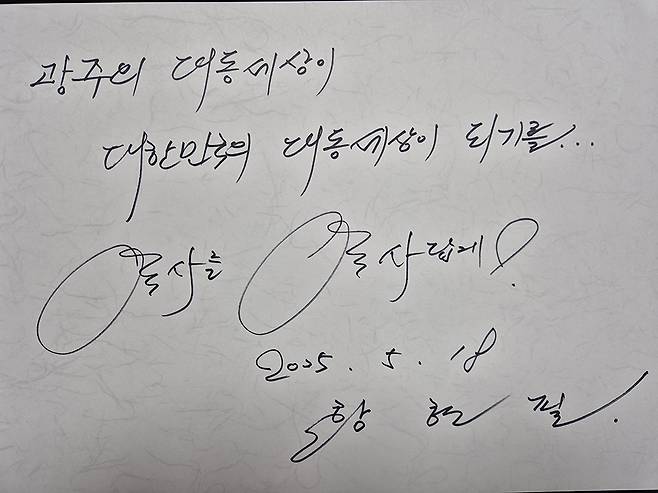 광주의 대동세상이
대한민국의 대동세상이 되기를...
역사를 역사답게!
2025. 5. 18
황현필.